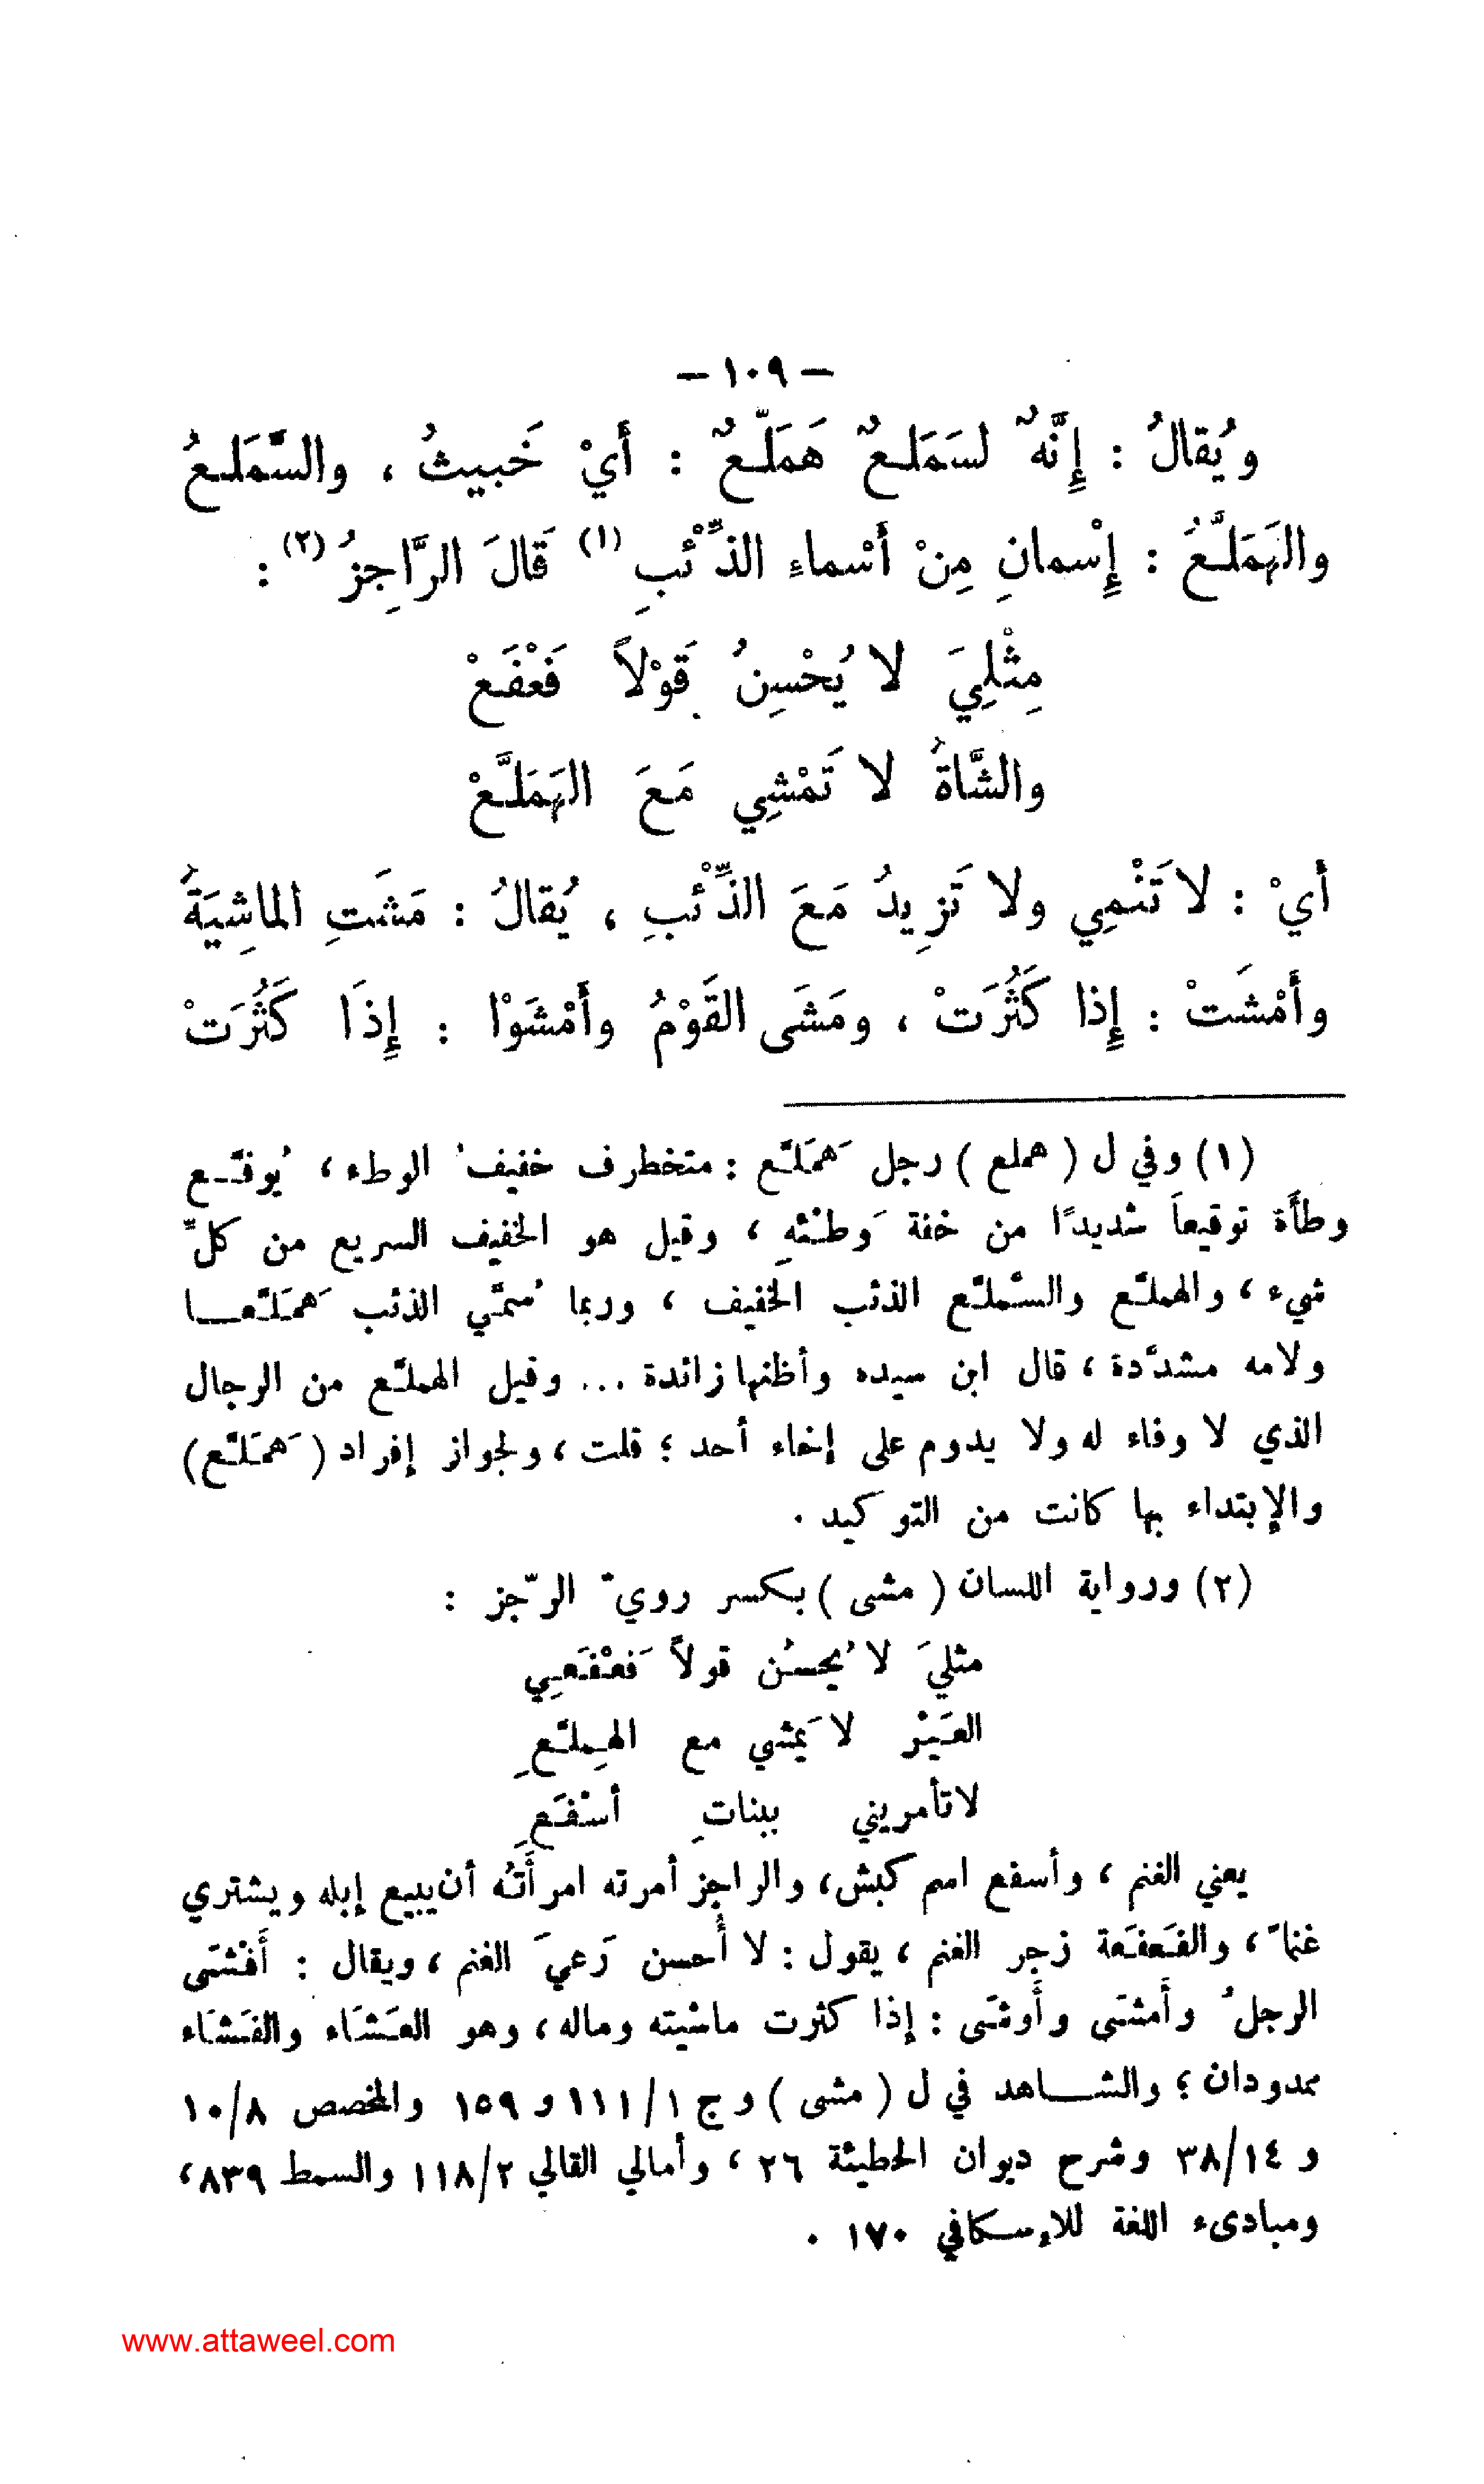 — ١٠٩ —
ويُقالُ : إِنَّهُ لسَمَلعٌ هَمَلّعٌ : أَيْ خَبيثُ ، والسَّمَلعُ
والهَمَلَّعُ : إِسْمانِ مِنْ أَسْماءِ الذِّئْبِ (١) قَالَ الرَّاجِزُ (٢) :
مِثْلِيَ لا يُحْسِنُ قَوْلاً فَعْفَعْ
والشَّاةُ لا تَمْشِي مَعَ الهَمَلَّعْ
أَيْ : لا تَنْمِي ولا تَزِيدُ مَعَ الذِّئْبِ ، يُقالُ : مَشَتِ الماشِيَةُ
وأَمْشَتْ : إِذا كَثُرَتْ ، ومَشَى القَوْمُ وأَمْشَوْا : إِذَا كَثُرَتْ
(١) وفي ل ( هملع ) رجل هَمَلَّع : متخطرف خفيفُ الوطء ، يُوقّـع
وطأَة توقيعاً شديدًا من خفة وَطْئهِ ، وقيل هو الخفيف السريع من كلِّ
شيء ، والهملّع والسَّملّع الذئب الخفيف ، وربما سُمّي الذئب هَمَلَّعــا
ولامه مشدَّدة ، قال ابن سيده وأظنها زائدة ... وقيل الهملّع من الرجال
الذي لا وفاء له ولا يدوم على إخاء أحد ؛ قلت ، ولجواز إفراد ( هَمَلَّع )
والإبتداء بها كانت من التوكيد .
(٢) ورواية اللسان ( مشى ) بكسر رويّ الرّجز :
مثليَ لا يُحسنُ قولاً فَعْفَعِي
العَيْر لا يَمشي مع الهِملّعِ
لا تأمريني ببناتِ أسْفَعِ
يعني الغنم ، وأسفع اسم كبش، والراجز أمرته امرأَتُه أن يبيع إبله ويشتري
غنماً ، والفَعفَعة زجر الغنم ، يقول : لا أُحسن رَعيَ الغنم ، ويقال : أَفْشَى
الرجلُ وأَمشَى وأَوشَى : إذا كثرت ماشيته وماله ، وهو المَشَاء والفَشَاء
ممدودان ؛ والشــاهد في ل ( مشى ) و ج ١/١١١ و ١٥٩ والمخصص ١٠/٨
و ٣٨/١٤ وشرح ديوان الحطيئة ٢٦ ، وأمالي القالي ١١٨/٢ والسمط ٨٣٩ ،
ومبادىء اللغة للإسكافي ١٧٠ .
www.attaweel.com